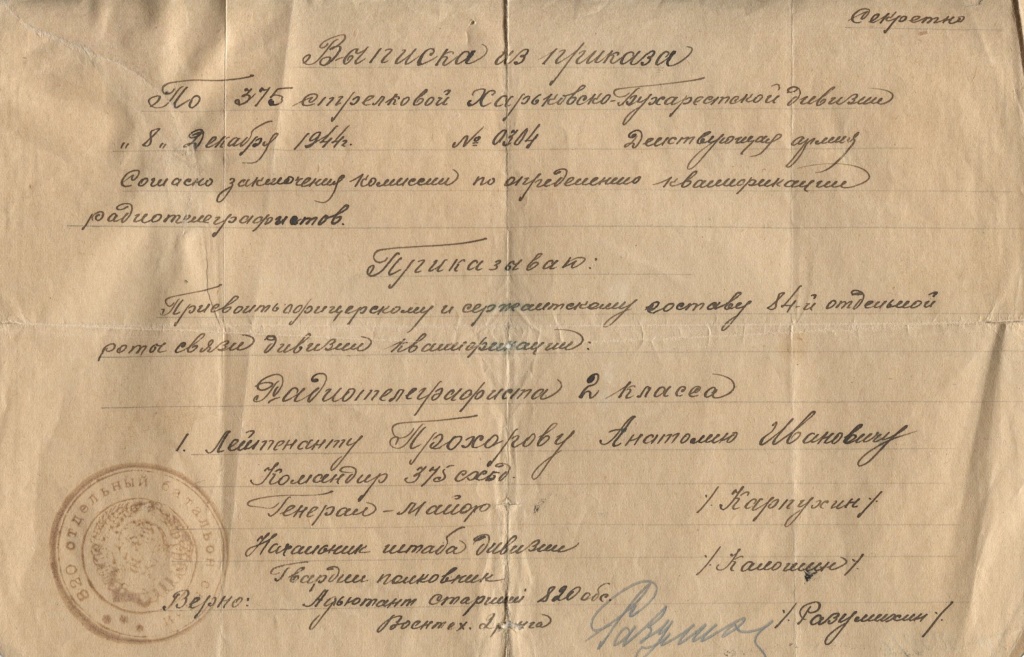 Секретно
Выписка из приказа
По 375 стрелковой Харьковско-Бухарестской дивизии
„8„ Декабря 1944г. № 0304 Действующая армия
Согласно заключения комиссии по определению квалификации
радиотелеграфистов.
Приказываю:
Присвоить офицерскому и сержантскому составу 84-й отдельной
роты связи дивизии квалификации:
Радиотелеграфиста 2 класса
1. Лейтенанту Прохорову Анатолию Ивановичу
Командир 375 схбд.
Генерал-Майор /Карпухин/
Начальник штаба дивизии
Гвардии полковник /Калошин/
Верно: Адьютант старший 820 обс.
Воентех. 2 ранга /Разумихин/
820 отдельный батальон